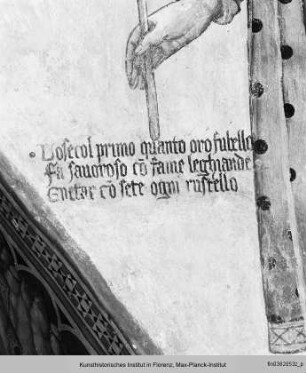 Losecol primo quanto oro fubello
Fa sauoroso cō fame leghiande
Enetar cō sete ogni ruscello
Kunsthistorisches Institut in Florenz, Max-Planck-Institut